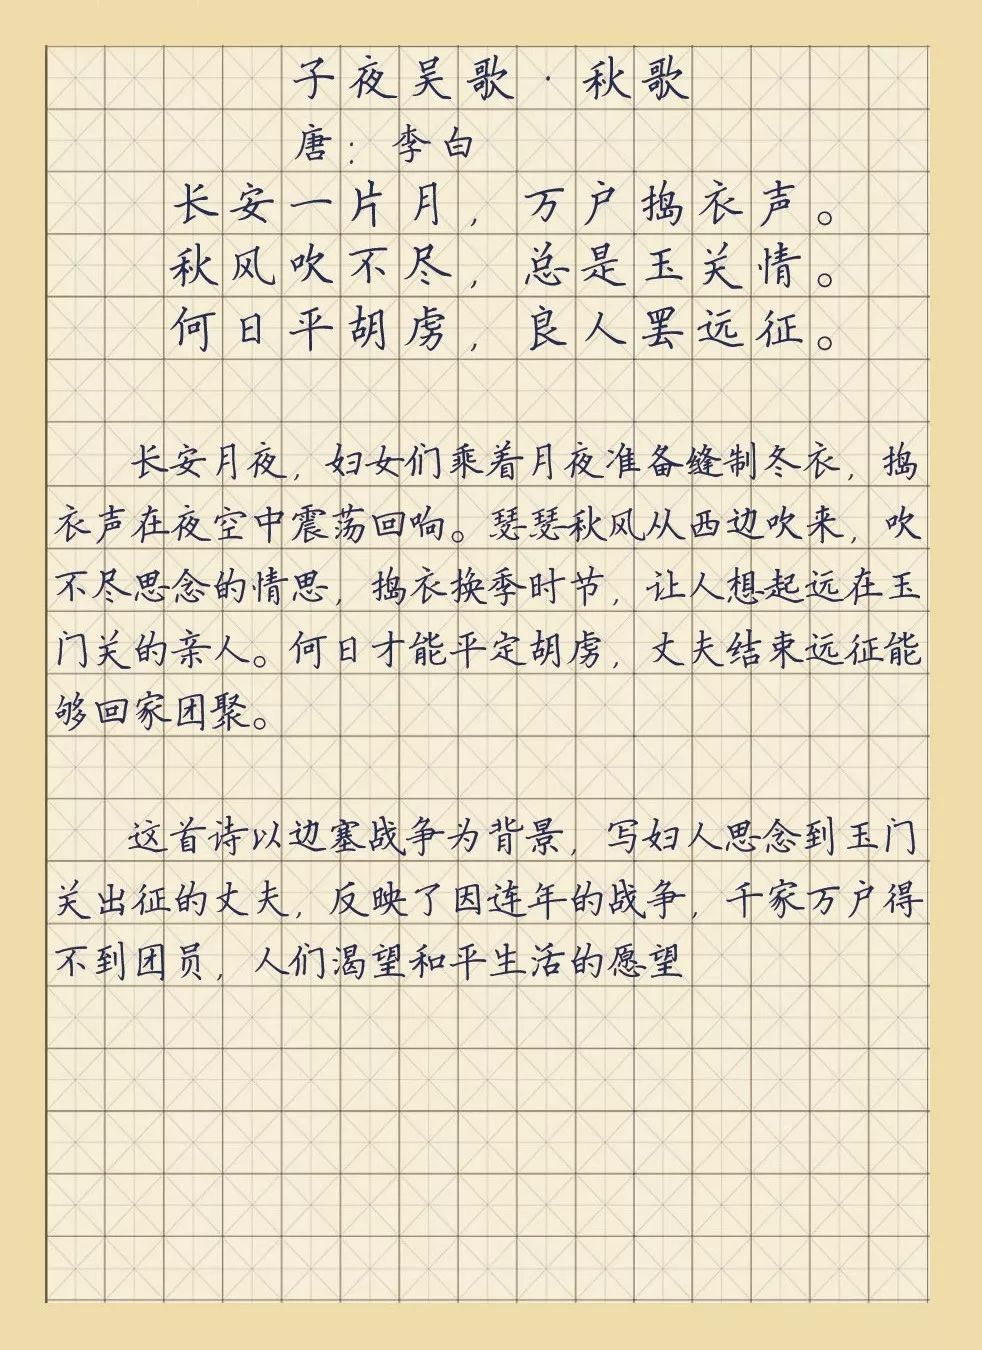 子夜吴歌·秋歌
唐：李白
长安一片月，万户捣衣声。
秋风吹不尽，总是玉关情。
何日平胡虏，良人罢远征。
长安月夜，妇女们乘着月夜准备缝制冬衣，捣
衣声在夜空中震荡回响。瑟瑟秋风从西边吹来，吹
不尽思念的情思，捣衣换季时节，让人想起远在玉
门关的亲人。何日才能平定胡虏，丈夫结束远征能
够回家团聚。
这首诗以边塞战争为背景，写妇人思念到玉门
关出征的丈夫，反映了因连年的战争，千家万户得
不到团员，人们渴望和平生活的愿望